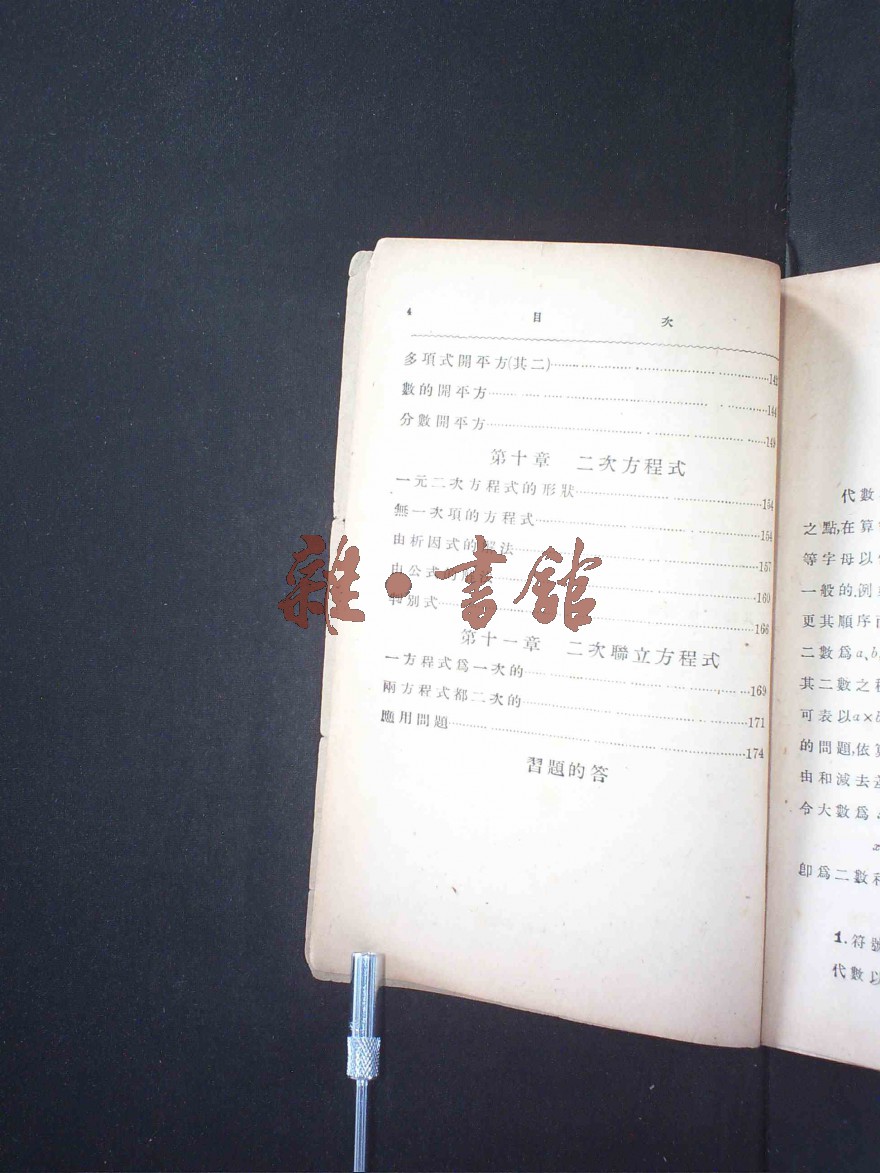 4 目 次
多項式開平方(其二)……142
數的開平方……144
分數開平方……148
第十章 二次方程式
一元二次方程式的形狀……154
無一次項的方程式……154
由析因式的解法……157
由公式的解法……160
判別式……166
第十一章 二次聯立方程式
一方程式爲一次的……169
兩方程式都二次的……171
應用問題……174
習題的答
雜·書館
代數
之點,在算
等字母以
一般的.例
更其順序
二數爲a、b
其二數之
可表以a×b
的問題,依
由和減去
令大數爲
x
卽爲二數
1.符號
代數以